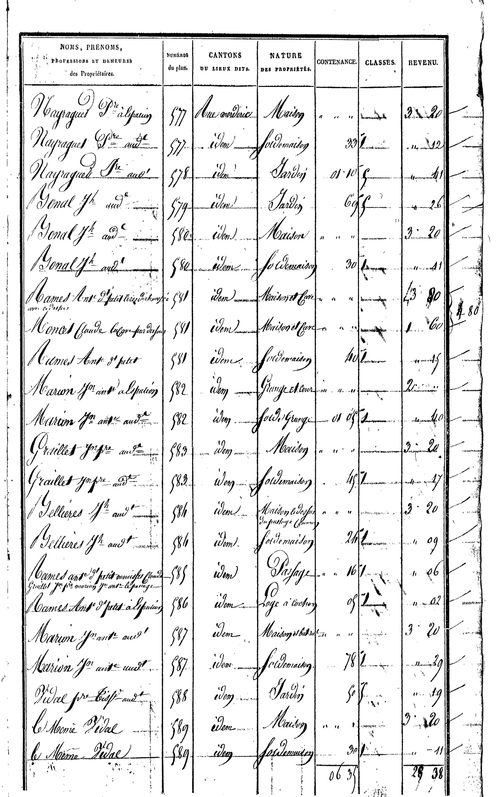 NOMS, PRÉNOMS, PROFESSIONS ET DEMEURES des Propriétaires. NUMÉROS du plan. CANTONS OU LIEUX DITS. NATURE DES PROPRIÉTÉS. CONTENANCE. CLASSES. REVENU.
Nayragues Pre à Espalion 577 Rue Maison " " " 3 20
Nayragues Pre aude 577 idem Soldemaison 33 1 " 12
Nayragues Pre audt 578 idem Jardin 01 10 5 " 41
Bonal Jh audt 579 idem Jardin 69 5 " 26
Bonal Jh audt 580 idem Maison " " " 3 20
Bonal Jh audt 580 idem Soldemaison 30 1 " 11
Rames Ant. dt petit 581 idem Maison et Cave " " 3 20
4 80
Moncet Claude 581 idem Maison et Cave " " " 1 60
Rames Ant dt petit 581 idem Soldemaison 40 1 " 15
Marion Jn ante à Espalion 582 idem Grange et Cour " " " 2 "
Marion Jn ante audt 582 idem Sol de Grange 01 05 1 " 40
Graillet Jn pre audt 583 idem Maison " " " 3 20
Graillet Jn pre audt 583 idem Soldemaison 45 1 " 17
Bellieres Jh audt 584 idem Maison 3 20
Bellieres Jh audt 584 idem Soldemaison 24 1 " 09
Rames ante dt petit Claude 585 idem Passage " 16 1 " 06
Rames Ant dt petit à Espalion 586 idem Loge à cochon 05 1 " 02
Marion Jn ante audt 587 idem Maison 3 20
Marion Jn ante audt 587 idem Soldemaison 78 1 " 29
Vidal pre audt 588 idem Jardin 50 5 " 19
le Meme Vidal 589 idem Maison " " " 3 20
le Meme Vidal 589 idem Soldemaison 30 1 " 11
06 35 28 38